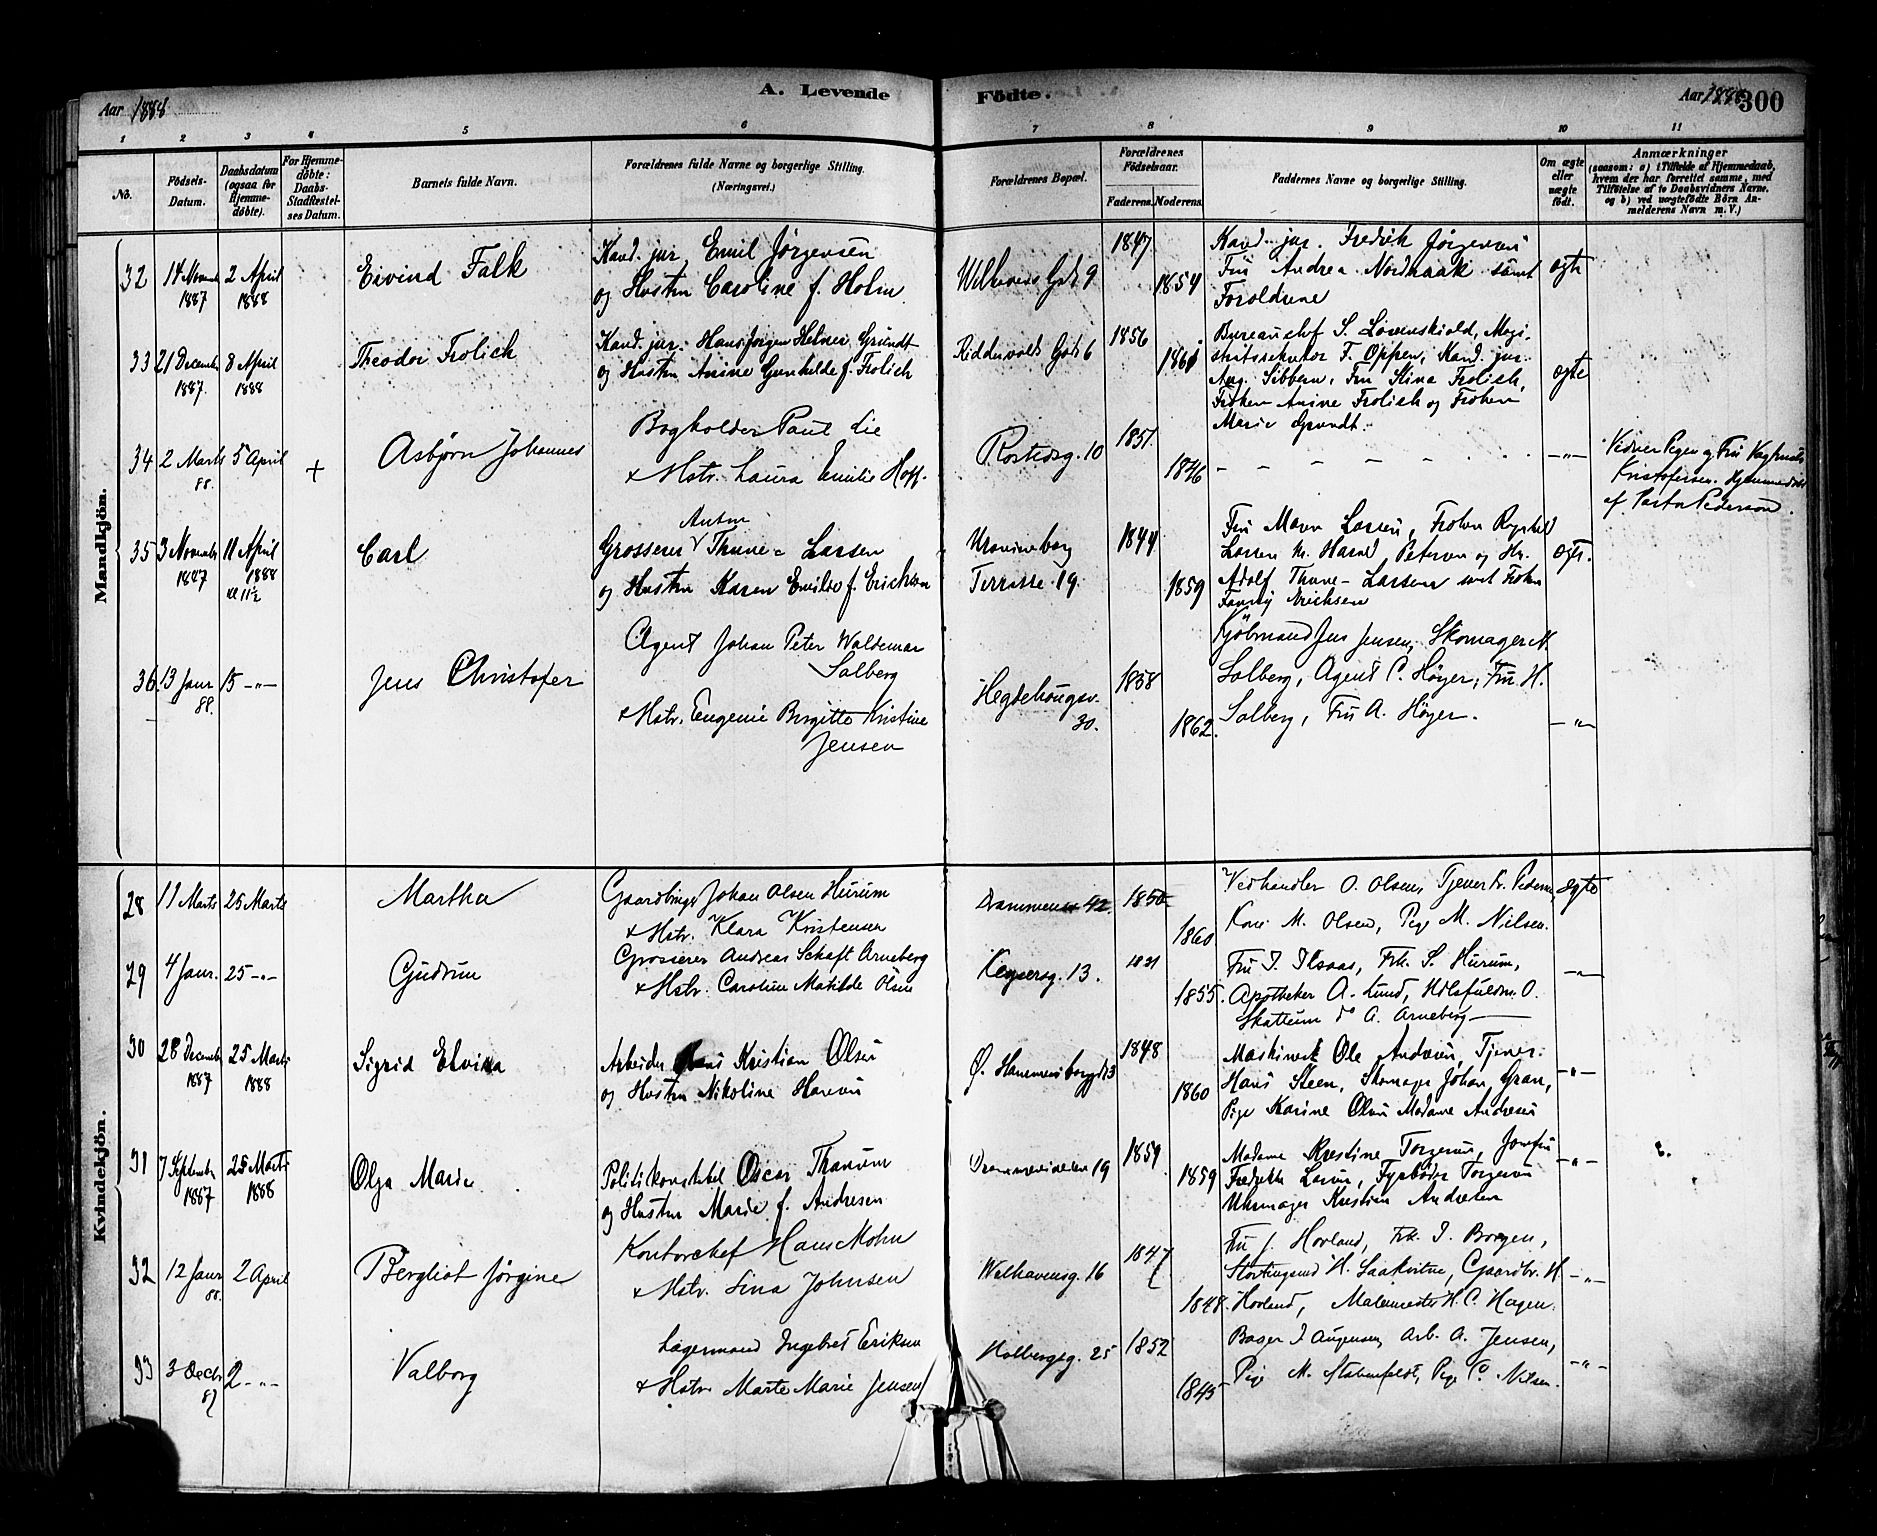 Aar 1888
A. Levende Födte.
Aar 1888
300
1 2 3 4 5 6 7 8 9 10 11
No.
Födsels-Datum.
Daabsdatum (ogsaa for Hjemme-döbte).
For Hjemme-döbte: Daabs-Stadfæstel-ses Datum.
Barnets fulde Navn.
Forældrenes fulde Navne og borgerlige Stilling. (Næringsvei.)
Forældrenes Bopæl.
Forældrenes Födselsaar.
Faderens. Moderens.
Faddernes Navne og borgerlige Stilling.
Om ægte eller uægte födt.
Anmærkninger
(saasom: a) i Tilfælde af Hjemmedaab, hvem der har forrettet samme, med Tilföielse af to Daabsvidners Navne. og b) ved uægtefödte Börn An-melderens Navn m. V.)
Mandkjön.
32 14 Novemb 1887 2 April 1888
Eivind Falk
Kand. jur. Emil Jørgensen
og Hustru Caroline f. Holm.
Welhavens Gade 9
1847 1854
Kand. jur. Fredrik Jørgensen
Fru Andrea Nordraak samt
Forældrene
ægte
33 21 December 1887. 8 April 1888
Theodor Frolich
Kand. jur. Hans Jørgen Grundt
og Hustru Anine Gunhilde f. Frolich
Riddervolds Gade 6
1856 1861
Bureauchef S. Løvenskiold, Magi-
F. Oppen, Kand. jur.
Aug. Sibbern, Fru Stina Frolich,
Frøken Anine Frolich og Frøken
Marie Grundt.
ægte
34 2 Marts 88. 5 April +
Asbjørn Johannes
Bogholder Paul Lie
& Hstr. Laura Emilie Hoff.
Rostedsg. 10
1851. 1846
- - - - - - -
-"-
Kristofersen. Hjemmedøbt
af Pastor Pederson.
35 3 Novemb 1887 11 April 1888 kl 11½
Carl
Anton
Grosserer Thune-Larsen
og Hustru Karen Emilie f. Erichsen
Uranineborg
Terrasse 19.
1844 1859
Fru Maren Larsen, Frøken Ragnhild
Larsen Hr. Harald Petersen og Hr.
Adolf Thune-Larsen samt Frøken
Fanny Erichsen
ægte.
36. 13 Janr 88. 15 -"-
Jens Christofer
Agent Johan Peter Waldemar
Solberg
& Hstr. Eugenie Birgitte Kristine
Jensen
Hegdehougsv.
30.
1858 1862.
Kjøbmand Jens Jensen, Skomager M.
Solberg, Agent C. Høyer, Fru H.
Solberg, Fru A. Høyer.
-"-
Kvindekjön.
28 11 Marts 25 Marts
Martha
Gaardbruger Johan Olsen Hurum
& Hstr. Klara Kristensen
Drammensv 42.
1850 1860
Vedhandler O. Olsen, Tjener Kr. Pedersen,
Kone M. Olsen, Pige M. Nilsen.
ægte
29 4 Janr. 25 -"-
Gudrun
Grosserer Andreas Schaft Arneberg
& Hstr. Caroline Matilde Olsen
Keysersg. 13.
1855.
Fru I. Ilsaas, Frk. S. Hurum,
Apotheker A. Lund, O.
Skattum do A. Arneberg
-"-
30 28 Decemb 1887 25 Marts 1888
Sigrid Elvina
Arbeider Hans Kristian Olsen
og Hustru Nikoline Hansen
Ø. Hammersborggd 3
1848 1860
Maskinist Ole Andersen, Tjener
Hans Steen, Skomager Johan Gran,
Pige Karine Olsen Madame Andresen
-"-
31 7 September 1887 25 Marts 1888
Olga Marie
Politikonstabel Oscar Thanum
og Hustru Marie f. Andresen
Drammensveien 19
1859. 1859
Madame Kristine Torgersen, Jomfru
Fredrikke Larsen, Fyrbøder Torgersen
Uhrmager Kristian Andresen
-"-
32 12 Janr 88. 2 April
Bergliot Jørgine
Kontorchef Hans Mohn
& Hstr. Lina Johnsen
Welhavensg. 16
1847 1848.
Fru J. Hovland, Frk. I. Borgen,
Stortingsmd H. Saakvitne, Gaardbr. H.
Hovland, Malemester H. C. Hagen.
-"-
33 3 Decbr 87 2 -"-
Valborg
Lagermand Ingebret Eriksen
& Hstr. Marte Marie Jensen
Holbergsg. 25
1852 1845
Bager I. Augensen, Arb. A. Jensen,
Pige M. Pige C. Nilsen.
-"-